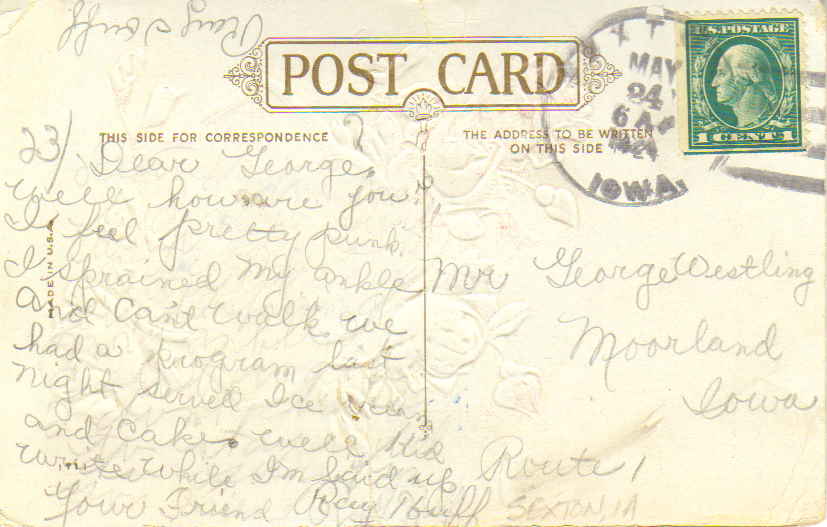 Ray Huff
POST CARD
THIS SIDE FOR CORRESPONDENCE
THE ADDRESS TO BE WRITTEN
ON THIS SIDE
MAY
24
6 A
IOWA
U.S. POSTAGE
1 CENT 1
MADE IN U.S.A.
23/ Dear George,
Well how are you?
I feel pretty punk.
I sprained my ankle
and Can't walk we
had a program last
night served Ice Cream
and Cake. well Kid
write while I'm laid up
Your Friend Ray Huff
Mr George Westling
Moorland
Iowa
Route 1
SEXTON, IA